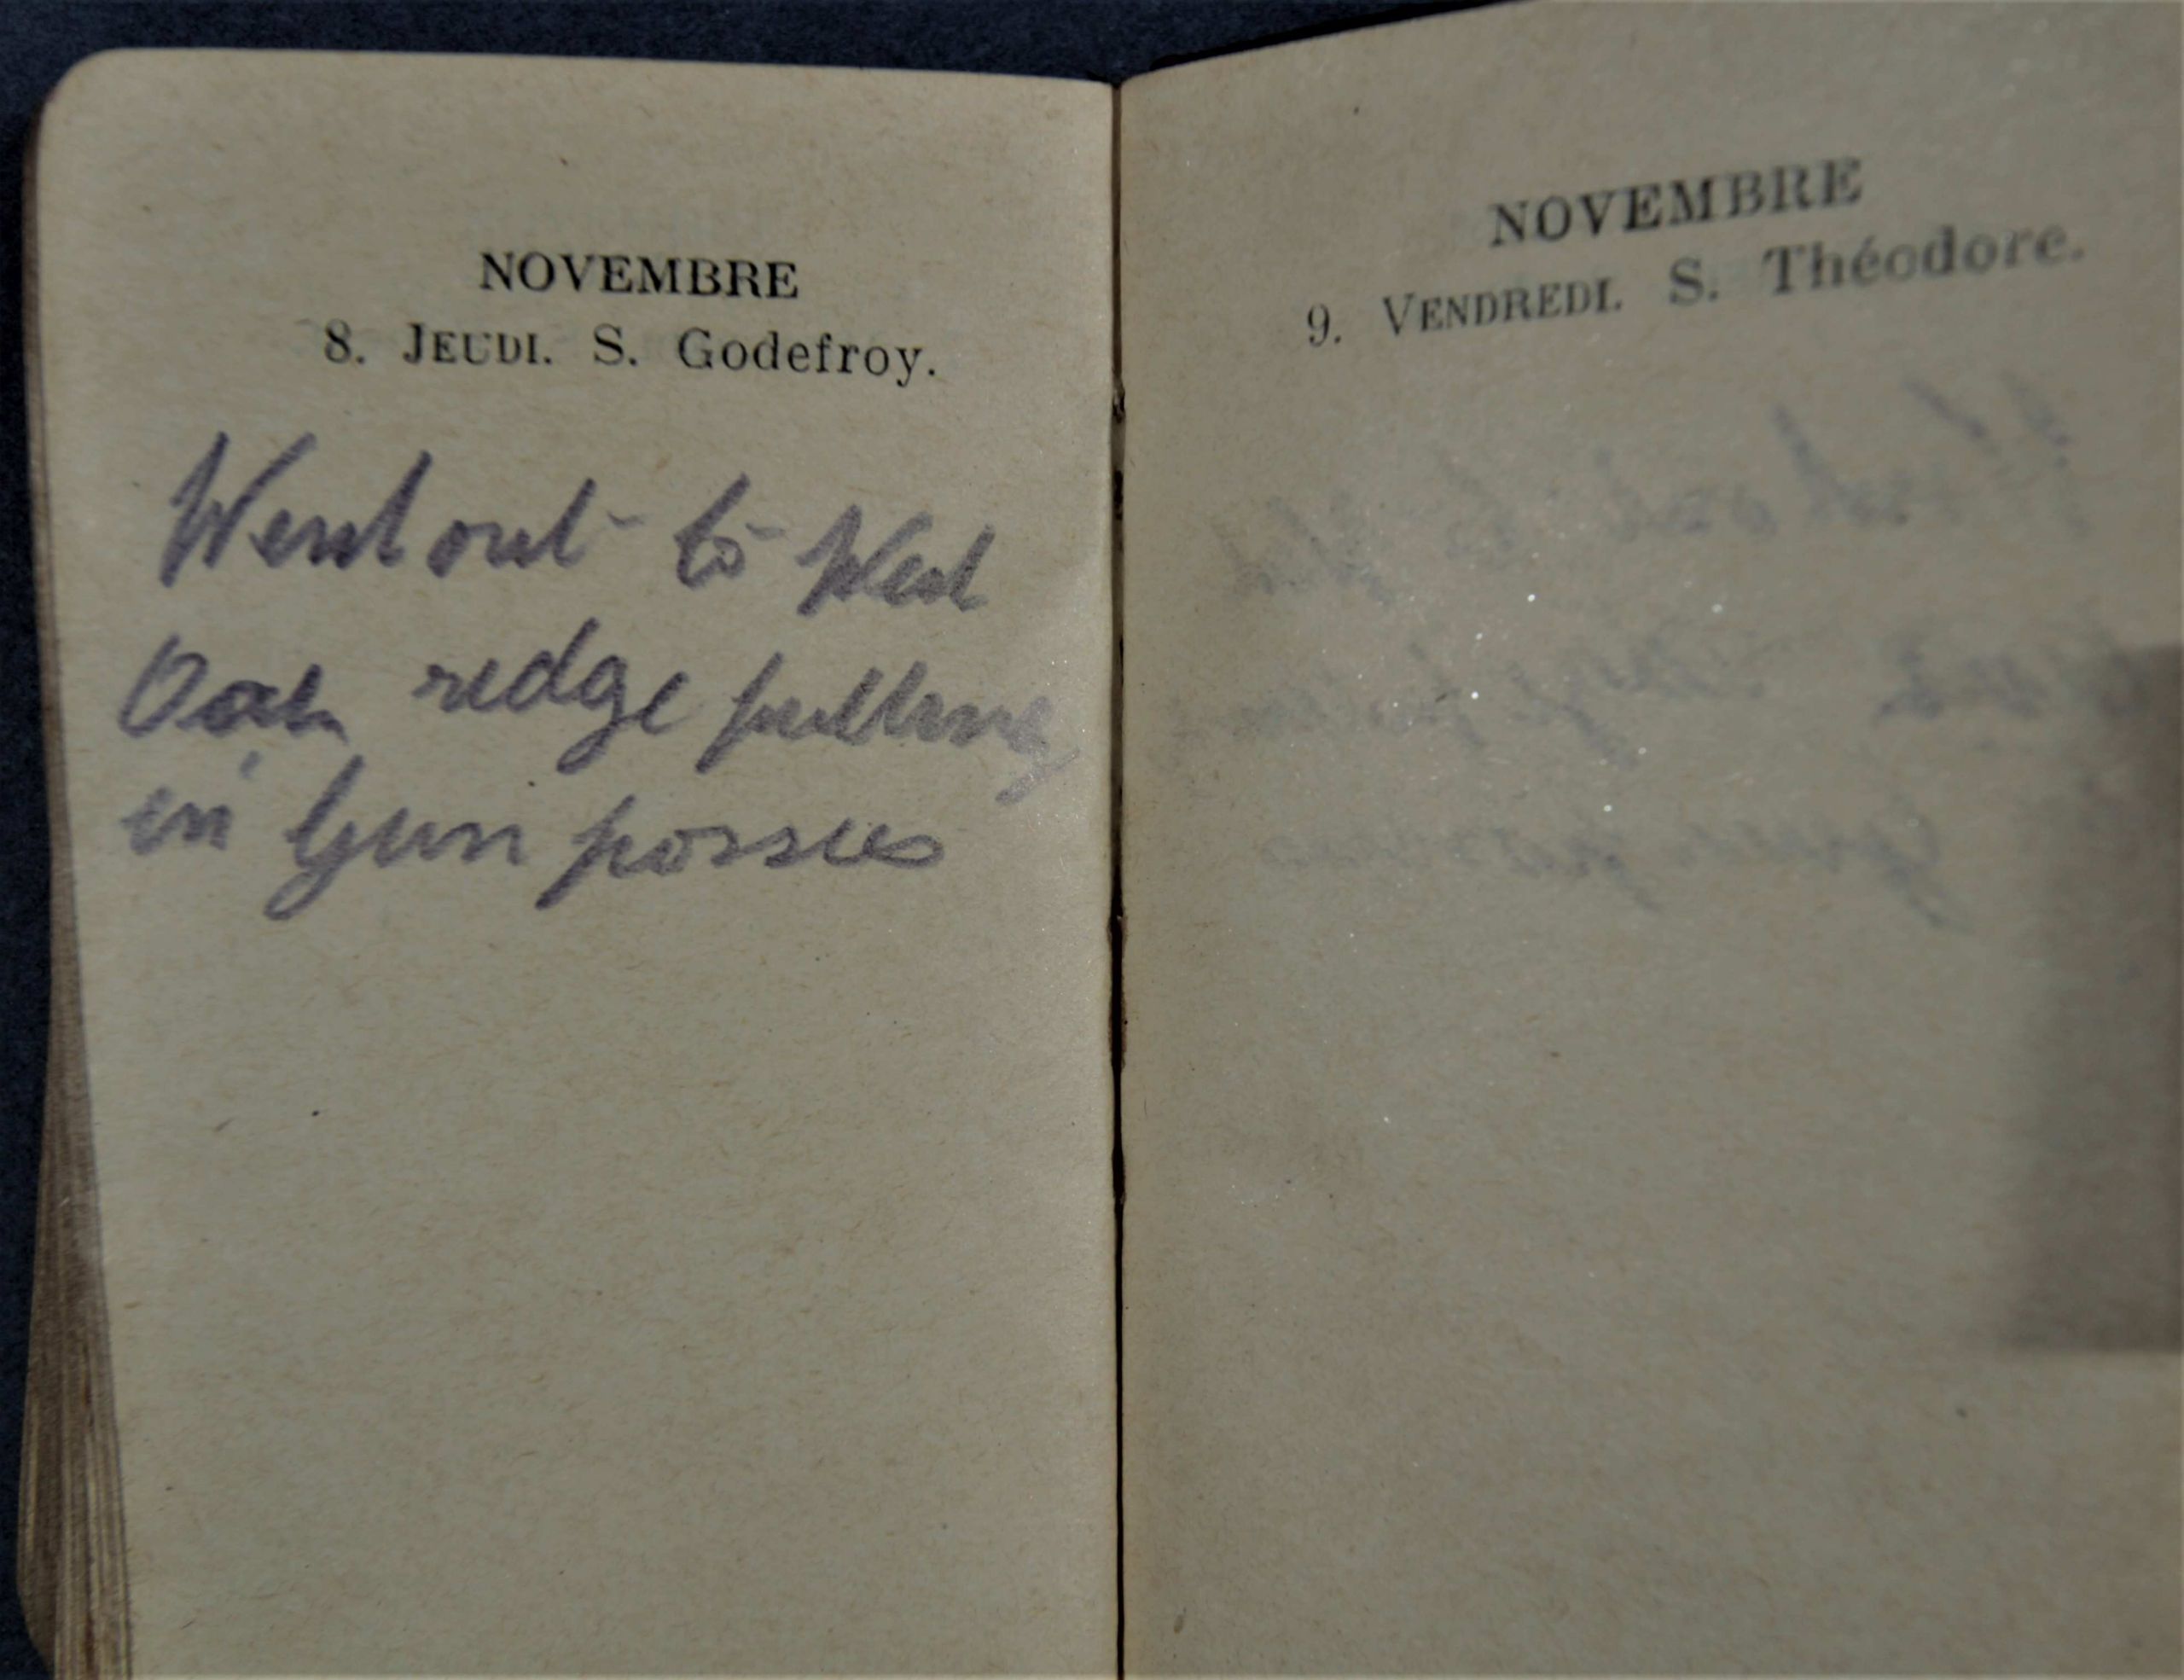 NOVEMBRE
8. JEUDI. S. Godefroy.
Went out to West
Oak ridge putting
in Gun possies
NOVEMBRE
9. VENDREDI. S. Théodore.